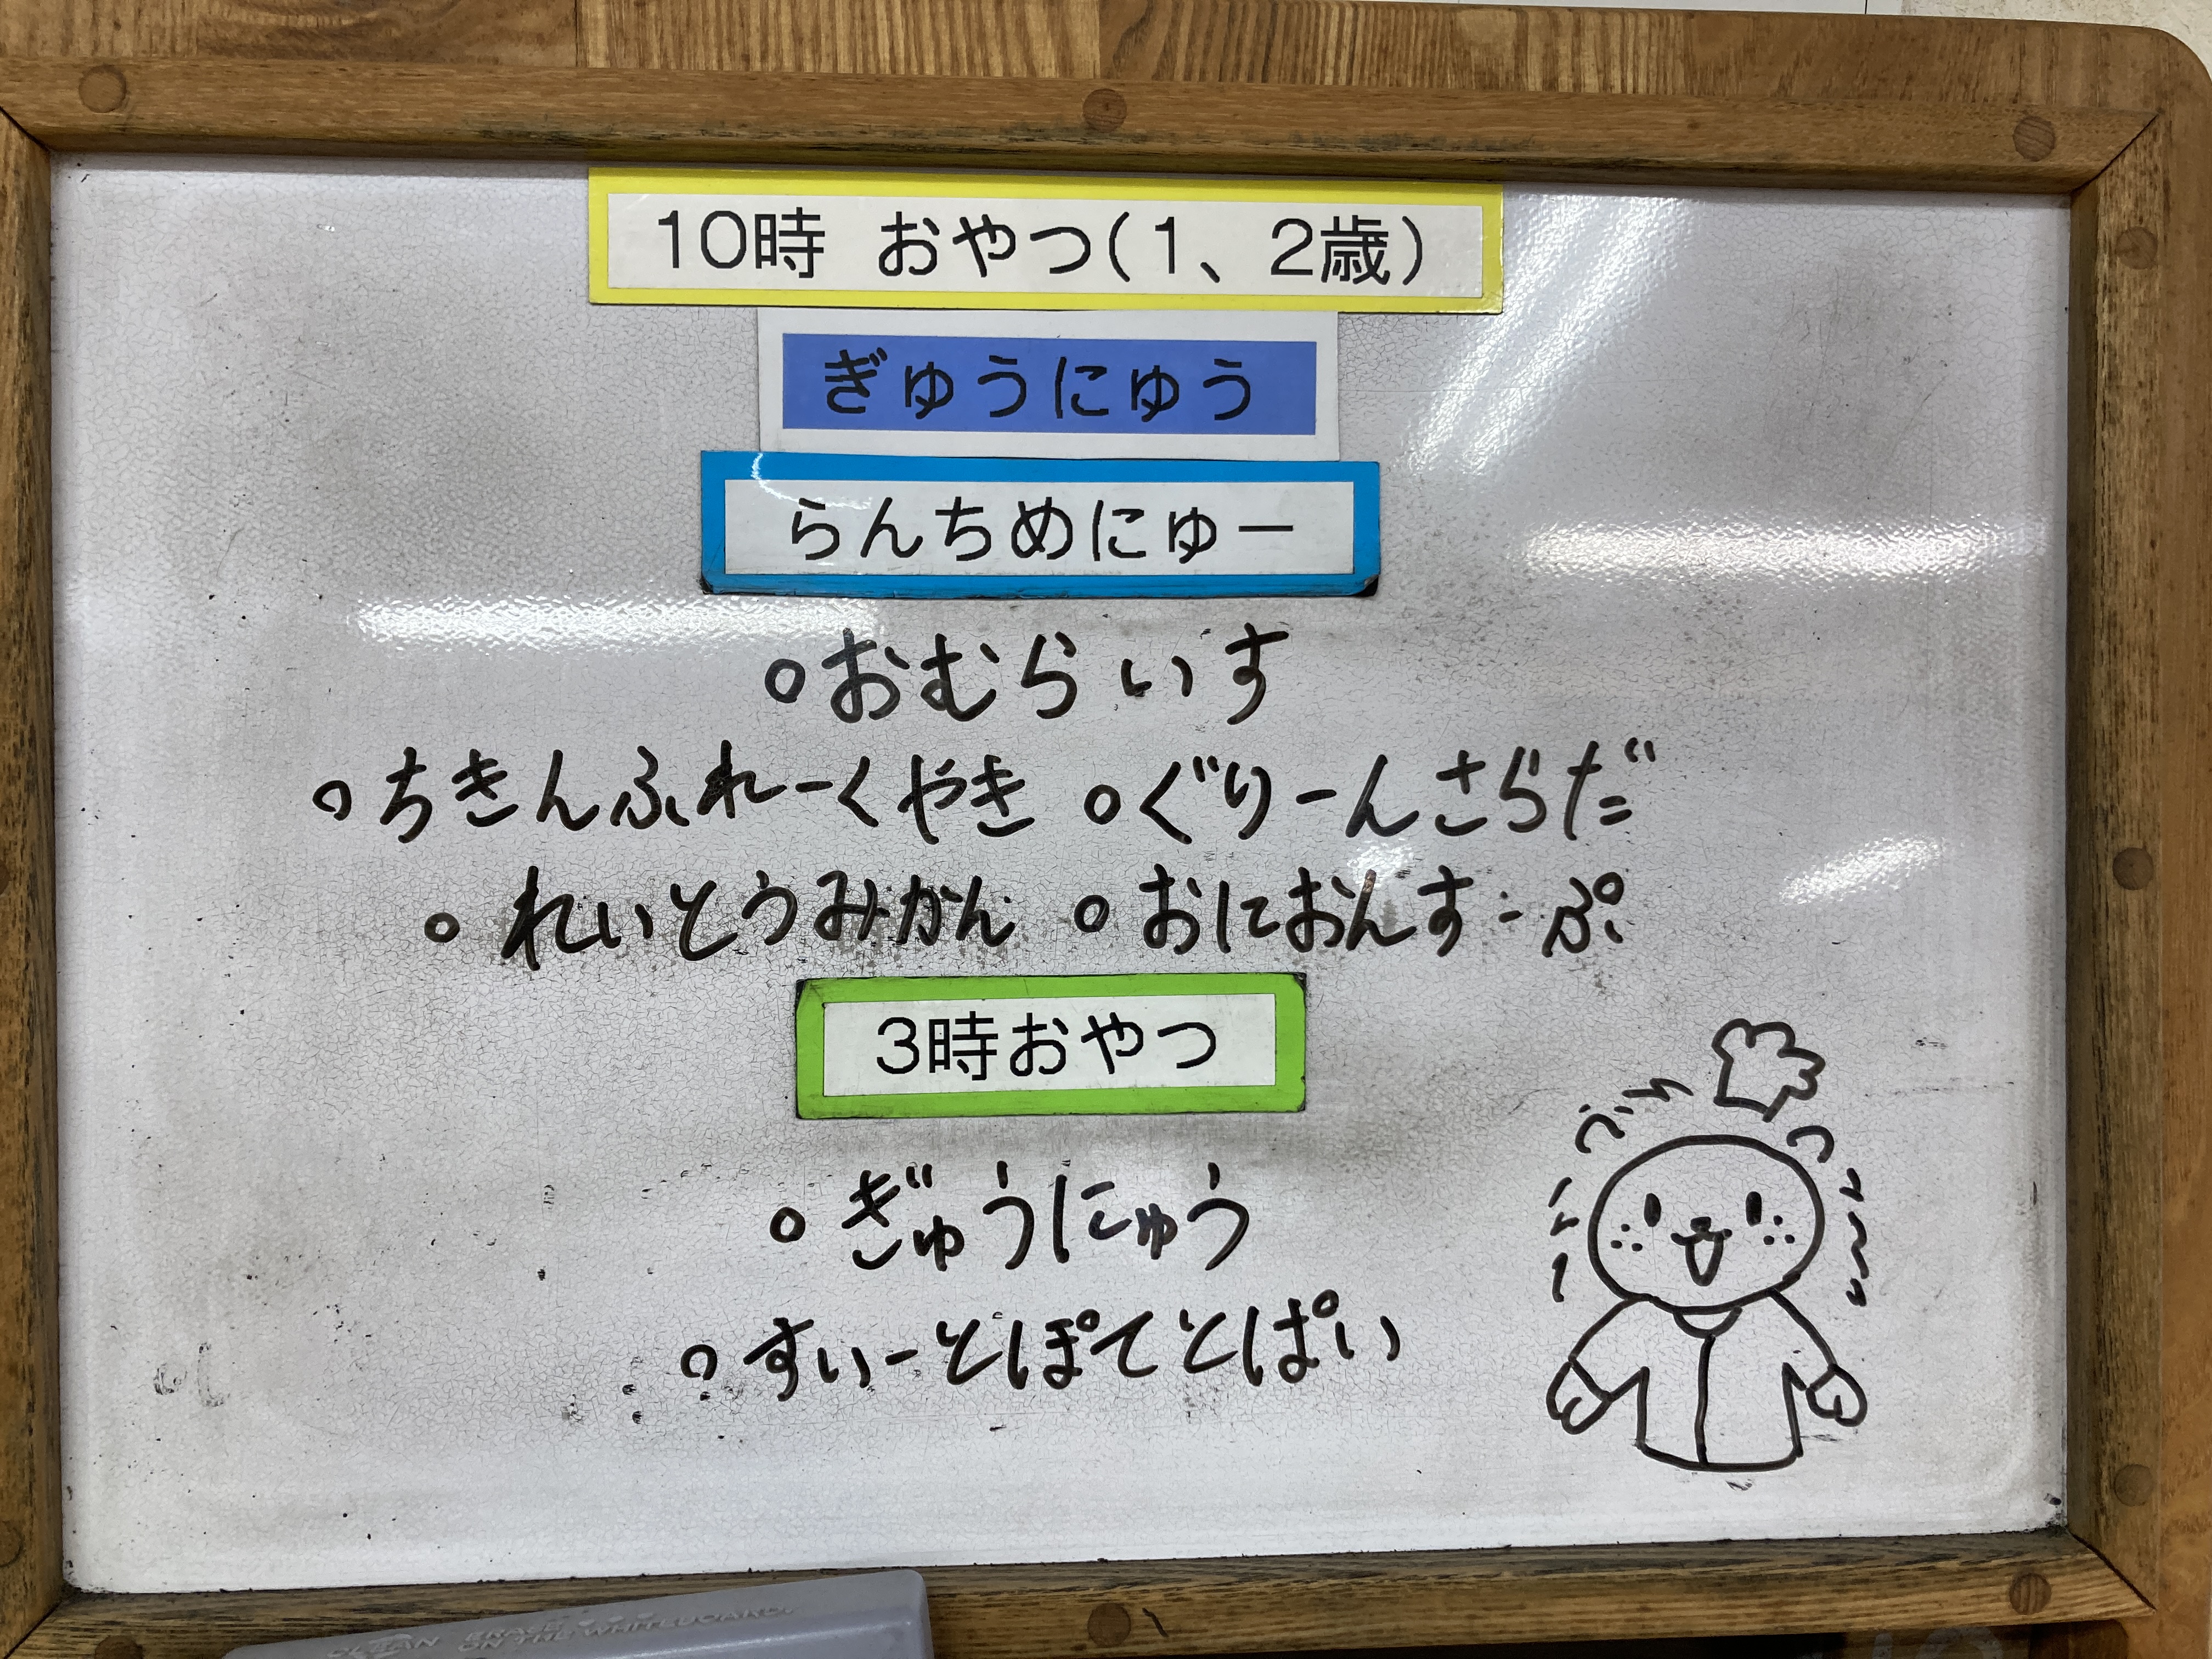 10時 おやつ(1、2歳)
ぎゅうにゅう
らんちめにゅー
○おむらいす
○ちきんふれーくやき ○ぐりーんさらだ
○れいとうみかん ○おにおんすーぷ
3時おやつ
○ぎゅうにゅう
○すいーとぽてとぱい
CLEAN ERASE
ON THE WHITEBOARD.